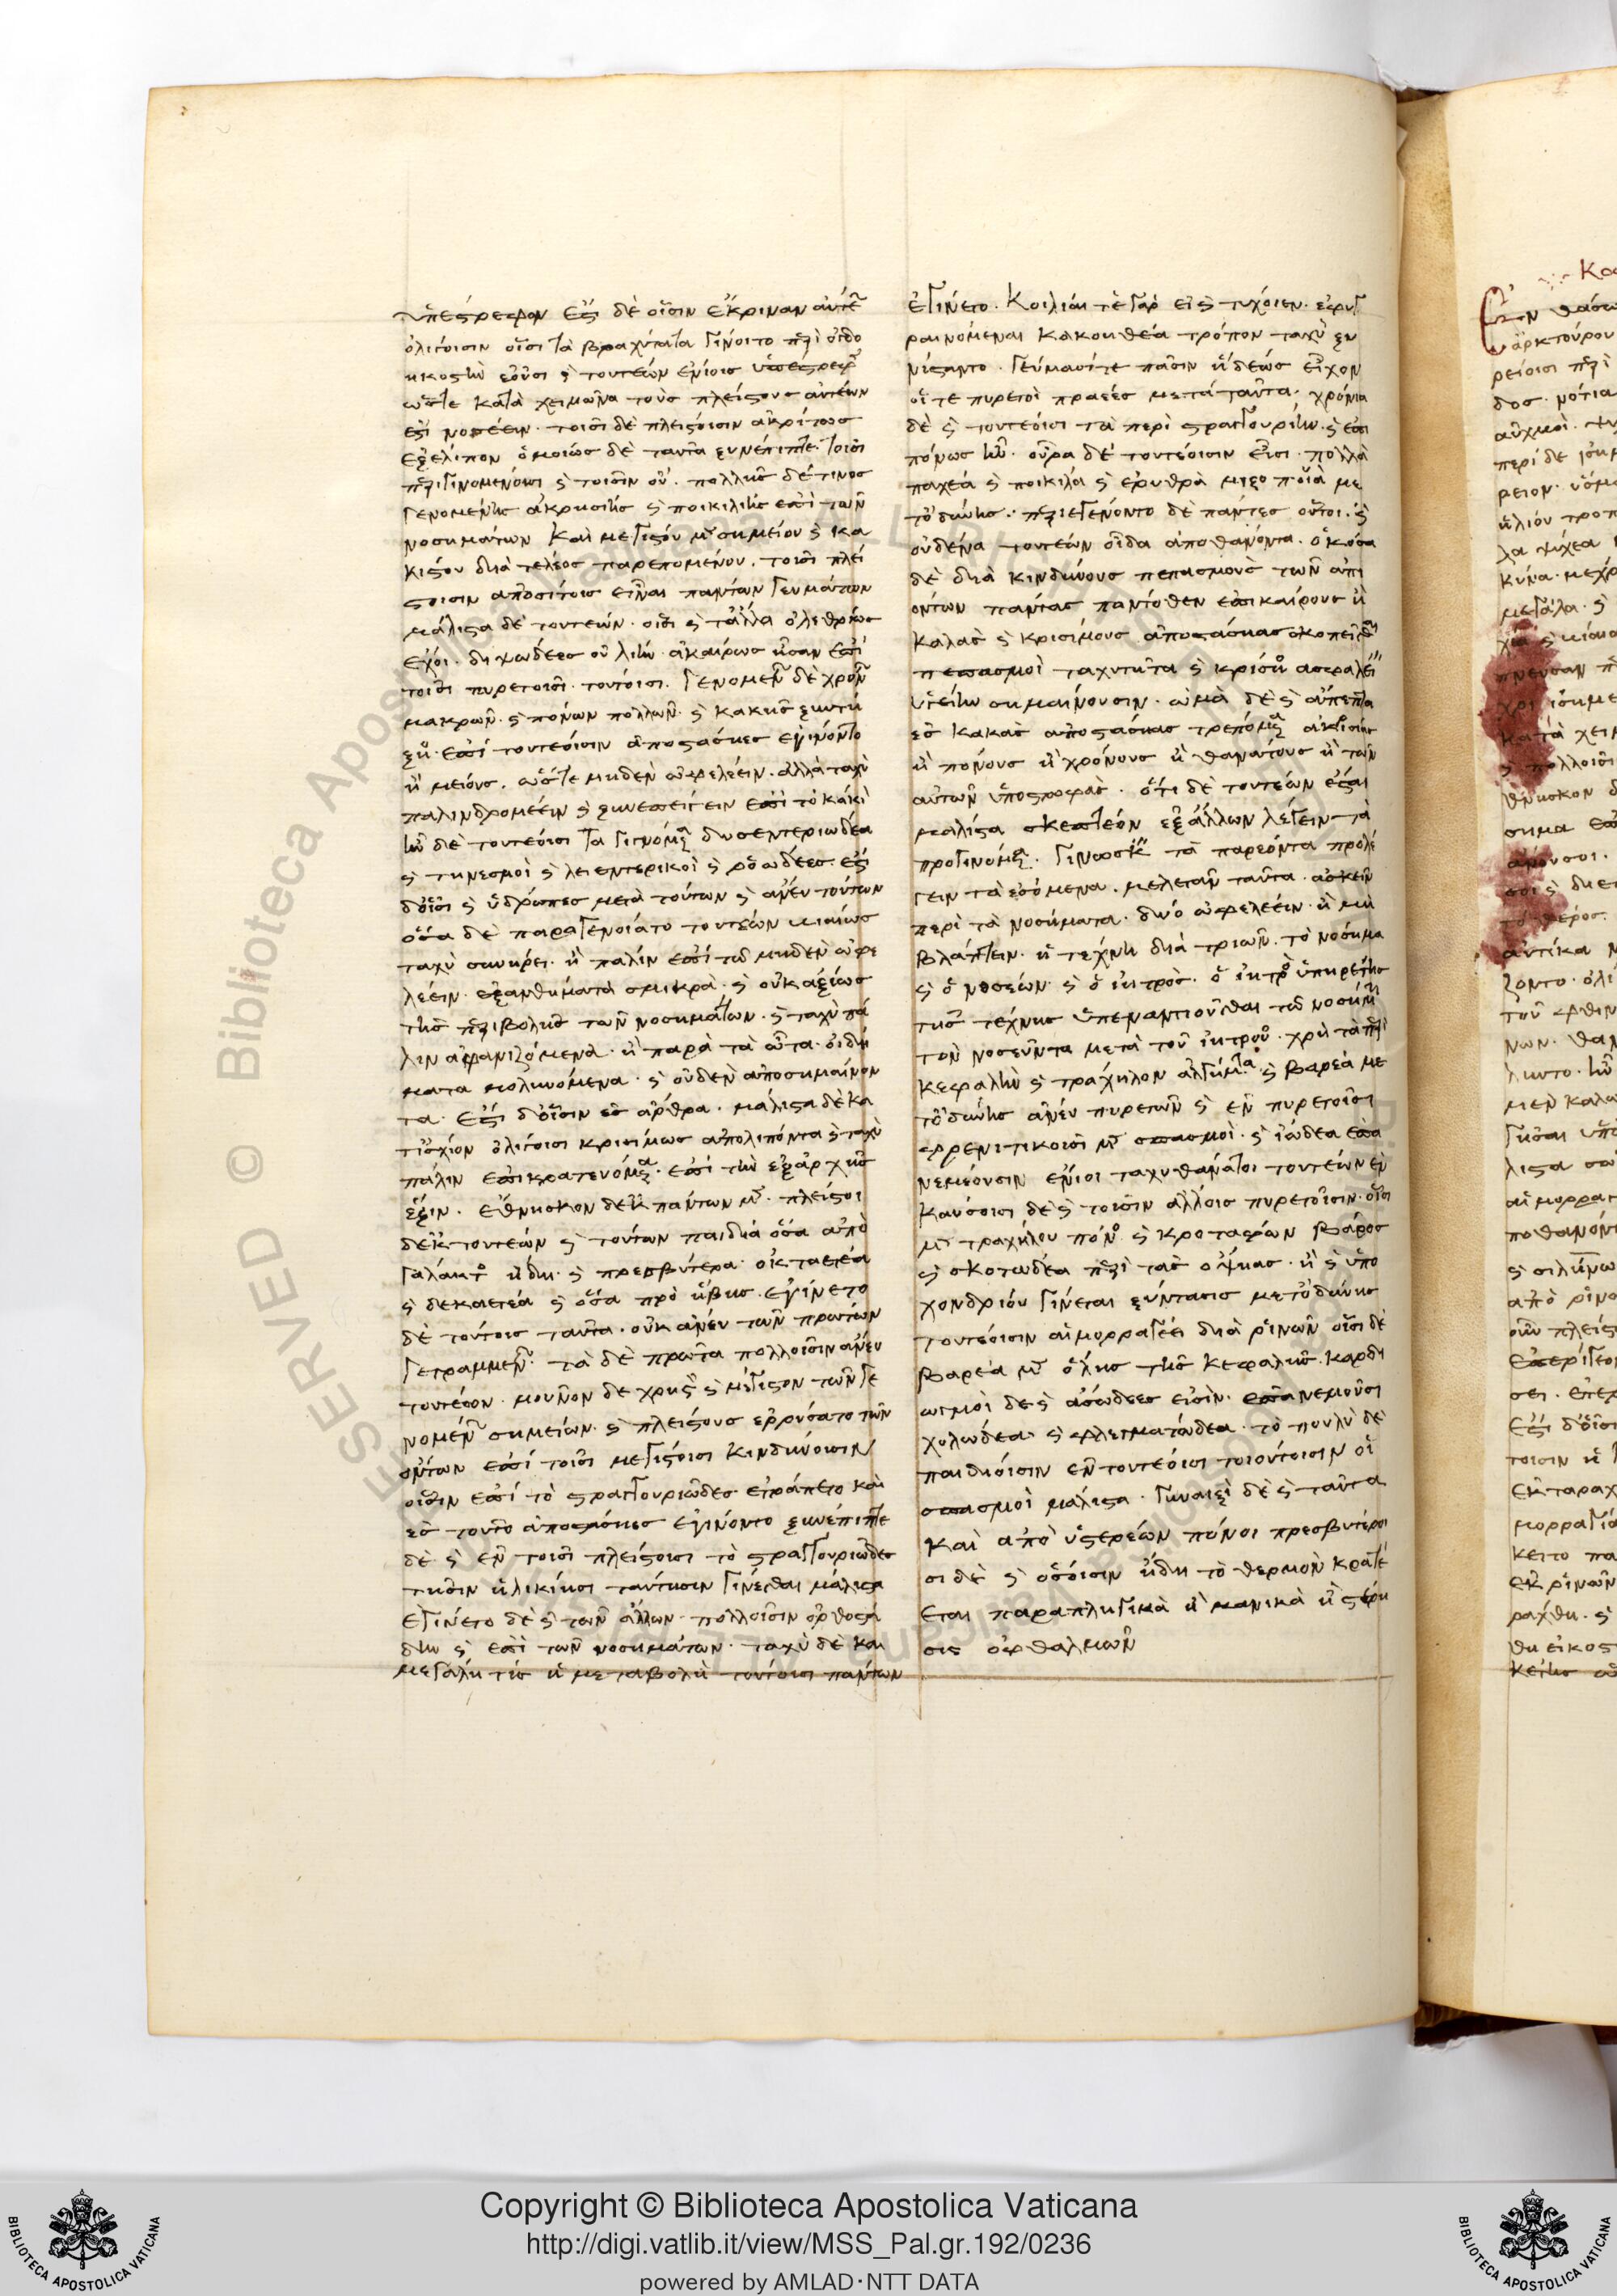 ὑπέστρεφον ἔστι δὲ οἷσιν ἔκριναν αὐτέων
ὀλίγοισιν οἷσι τὰ βραχύτατα γίνοιτο περὶ ὀγδο
ηκοστὴν ἐοῦσι καὶ τουτέων ἐνίοις ὑπέστρεφεν
ὥστε κατὰ χειμῶνα τοὺς πλείστους αὐτέων
ἔτι νοσέειν. τοῖσι δὲ πλείστοισιν ἀκρίτως
ἐξέλιπον ὁμοίως δὲ ταῦτα ξυνέπιπτε τοῖσι
περιγινομένοισι καὶ τοῖσιν οὔ. πολλῆς δέ τινος
γενομένης ἀκρισίης καὶ ποικιλίης ἐπὶ τῶν
νοσημάτων καὶ μεγίστου μὲν σημείου καὶ κα
κίστου διὰ τέλεος παρεπομένου. τοῖσι πλεί
στοισιν ἀποσίτοις εἶναι πάντων γευμάτων
μάλιστα δὲ τουτέων. οἷσι καὶ τἆλλα ὀλεθρίως
ἔχοι. διψώδεες οὐ λίην ἀκαίρως ἦσαν ἐπὶ
τοῖσι πυρετοῖσι τούτοισι. γενομένων δὲ χρόνων
μακρῶν. καὶ πόνων πολλῶν. καὶ κακῆς συντή
ξιος. ἐπὶ τουτέοισιν ἀποστάσιες ἐγίνοντο
ἢ μείους. ὥστε μηδὲν ὠφελέειν. ἀλλὰ ταχὺ
παλινδρομέειν καὶ ξυνεπείγειν ἐπὶ τὸ κάκιον
ἦν δὲ τουτέοισι τὰ γιγνόμενα δυσεντεριώδεα
καὶ τηνεσμοὶ καὶ λειεντερικοὶ καὶ ῥοώδεες. ἔστι
δ' οἷσι καὶ ὕδρωπες μετὰ τούτων καὶ ἄνευ τούτων
ὅσα δὲ παραγενοίατο τουτέων βιαίως
ταχὺ συνῄρει. ἢ πάλιν ἐπὶ τὸ μηδὲν ὠφε
λέειν. ἐξανθήματα σμικρὰ. καὶ οὐκ ἀξίως
τῆς περιβολῆς τῶν νοσημάτων. καὶ ταχὺ πά
λιν ἀφανιζόμενα. ἢ παρὰ τὰ ὦτα οἰδή
ματα μολυνόμενα. καὶ οὐδὲν ἀποσημαίνον
τα. ἔστι δ' οἷσιν ἐς ἄρθρα. μάλιστα δὲ κα
τ' ἰσχίον ὀλίγοισι κρισίμως ἀπολιπόντα καὶ ταχὺ
πάλιν ἐπικρατευόμενα. ἐπὶ τὴν ἐξ ἀρχῆς
ἕξιν. ἔθνησκον δ' ἐκ πάντων μὲν. πλεῖστοι
δ' ἐκ τουτέων καὶ τούτων παιδία ὅσα ἀπὸ
γάλακτος ἤδη. καὶ πρεσβύτερα ὀκταετέα
καὶ δεκαετέα καὶ ὅσα πρὸ ἥβης. ἐγίνετο
δὲ τούτοις ταῦτα. οὐκ ἄνευ τῶν πρώτων
γεγραμμένων. τὰ δὲ πρῶτα πολλοῖσιν ἄνευ
τουτέων. μοῦνον δὲ χρηστὸν καὶ μέγιστον τῶν γε
νομένων σημείων. καὶ πλείστους ἐρρύσατο τῶν
ὄντων ἐπὶ τοῖσι μεγίστοισι κινδύνοισιν
οἷσιν ἐπὶ τὸ στραγγουριῶδες ἐτράπετο καὶ
ἐς τοῦτο ἀποστάσιες ἐγίνοντο ξυνέπιπτε
δὲ καὶ ἐν τοῖσι πλείστοισι τὸ στραγγουριῶδες
τῇσιν ἡλικίῃσι ταύτῃσιν γίνεσθαι μάλιστα
ἐγίνετο δὲ καὶ τῶν ἄλλων πολλοῖσιν ὀρθοστά
δην καὶ ἐπὶ τῶν νοσημάτων. ταχὺ δὲ καὶ
μεγάλη τις ἡ μεταβολὴ τούτοισι πάντων
ἐγίνετο. Κοιλίαι τε γὰρ εἰ καὶ τύχοιεν. ἐφυγ
ραινόμεναι κακοήθεα τρόπον ταχὺ ξυ
νίσταντο. γεύμασί τε πᾶσιν ἡδέως εἶχον
οἵ τε πυρετοὶ πρηέες μετὰ ταῦτα. χρόνια
δὲ καὶ τουτέοισι τὰ περὶ στραγγουρίην. καὶ ἐπι
πόνως ἦν. οὖρα δὲ τουτέοισιν εἶσι. πολλὰ
παχέα καὶ ποικίλα καὶ ἐρυθρὰ μιξόποια με
τ' ὀδύνης. περιεγένοντο δὲ πάντες οὗτοι. καὶ
οὐδένα τουτέων οἶδα ἀποθανόντα. ὁκόσα
δὲ διὰ κινδύνους πεπασμοὺς τῶν ἀπι
όντων πάντας πάντοθεν ἐπικαίρους ἢ
καλὰς καὶ κρισίμους ἀποστάσιας σκοπεῖσθαι
πεπασμοὶ ταχυτῆτα καὶ κρίσιος ἀσφαλείην
ὑγιείην σημαίνουσιν. ὠμὰ δὲ καὶ ἄπεπτα
ἐς κακὰς ἀποστάσιας τρεπόμενα ἀκρισίας
ἢ πόνους ἢ χρόνους ἢ θανάτους ἢ τῶν
αὐτῶν ὑποστροφὰς. ὅτι δὲ τουτέων ἔσται
μάλιστα σκεπτέον ἐξ ἄλλων λέγειν τὰ
προγινόμενα. γινώσκειν τὰ παρεόντα προλέ
γειν τὰ ἐσόμενα. μελετᾶν ταῦτα. ἀσκεῖν
περὶ τὰ νοσήματα. δύο ὠφελέειν. ἢ μὴ
βλάπτειν. ἡ τέχνη διὰ τριῶν. τὸ νόσημα
καὶ ὁ νοσέων. καὶ ὁ ἰητρός. ὁ ἰητρὸς ὑπηρέτης
τῆς τέχνης ὑπεναντιοῦσθαι τῷ νοσήματι
τὸν νοσεῦντα μετὰ τοῦ ἰητροῦ χρὴ τὰ περὶ
κεφαλὴν καὶ τράχηλον ἀλγήματα. καὶ βαρέα με
τ' ὀδύνης ἄνευ πυρετῶν καὶ ἐν πυρετοῖσι
φρενιτικοῖσι μὲν σπασμοὶ. καὶ ἰώδεα ἐπα
νεμέουσιν ἔνιοι ταχυθάνατοι τουτέων ἐν
καύσοισι δὲ καὶ τοῖσιν ἄλλοις πυρετοῖσιν. οἷσι
μὲν τραχήλου πόνος καὶ κροτάφων βάρος
καὶ σκοτώδεα περὶ τὰς ὄψιας. ἢ καὶ ὑπο
χονδρίου γίνεται ξύντασις μετ' ὀδύνης
τουτέοισιν αἱμορραγέει διὰ ῥινῶν οἷσι δὲ
βαρέα μὲν ὅλης τῆς κεφαλῆς. καρδι
ωγμοὶ δὲ καὶ ἀσώδεες εἰσὶν. ἐπανεμοῦσι
χολώδεα καὶ φλεγματώδεα. τὸ πουλὺ δὲ
παιδίοισιν ἐν τουτέοισι τοιούτοισιν οἱ
σπασμοὶ μάλιστα. γυναιξὶ δὲ καὶ ταῦτα
καὶ ἀπὸ ὑστερέων πόνοι πρεσβυτέροι
σι δὲ καὶ ὁσοισιν ἤδη τὸ θερμὸν κρατέ
εται παραπληγικὰ ἢ μανικὰ ἢ στερή
σις ὀφθαλμῶν
Copyright © Biblioteca Apostolica Vaticana
http://digi.vatlib.it/view/MSS_Pal.gr.192/0236
powered by AMLAD·NTT DATA
BIBLIOTECA APOSTOLICA VATICANA
BIBLIOTECA APOSTOLICA VATICANA